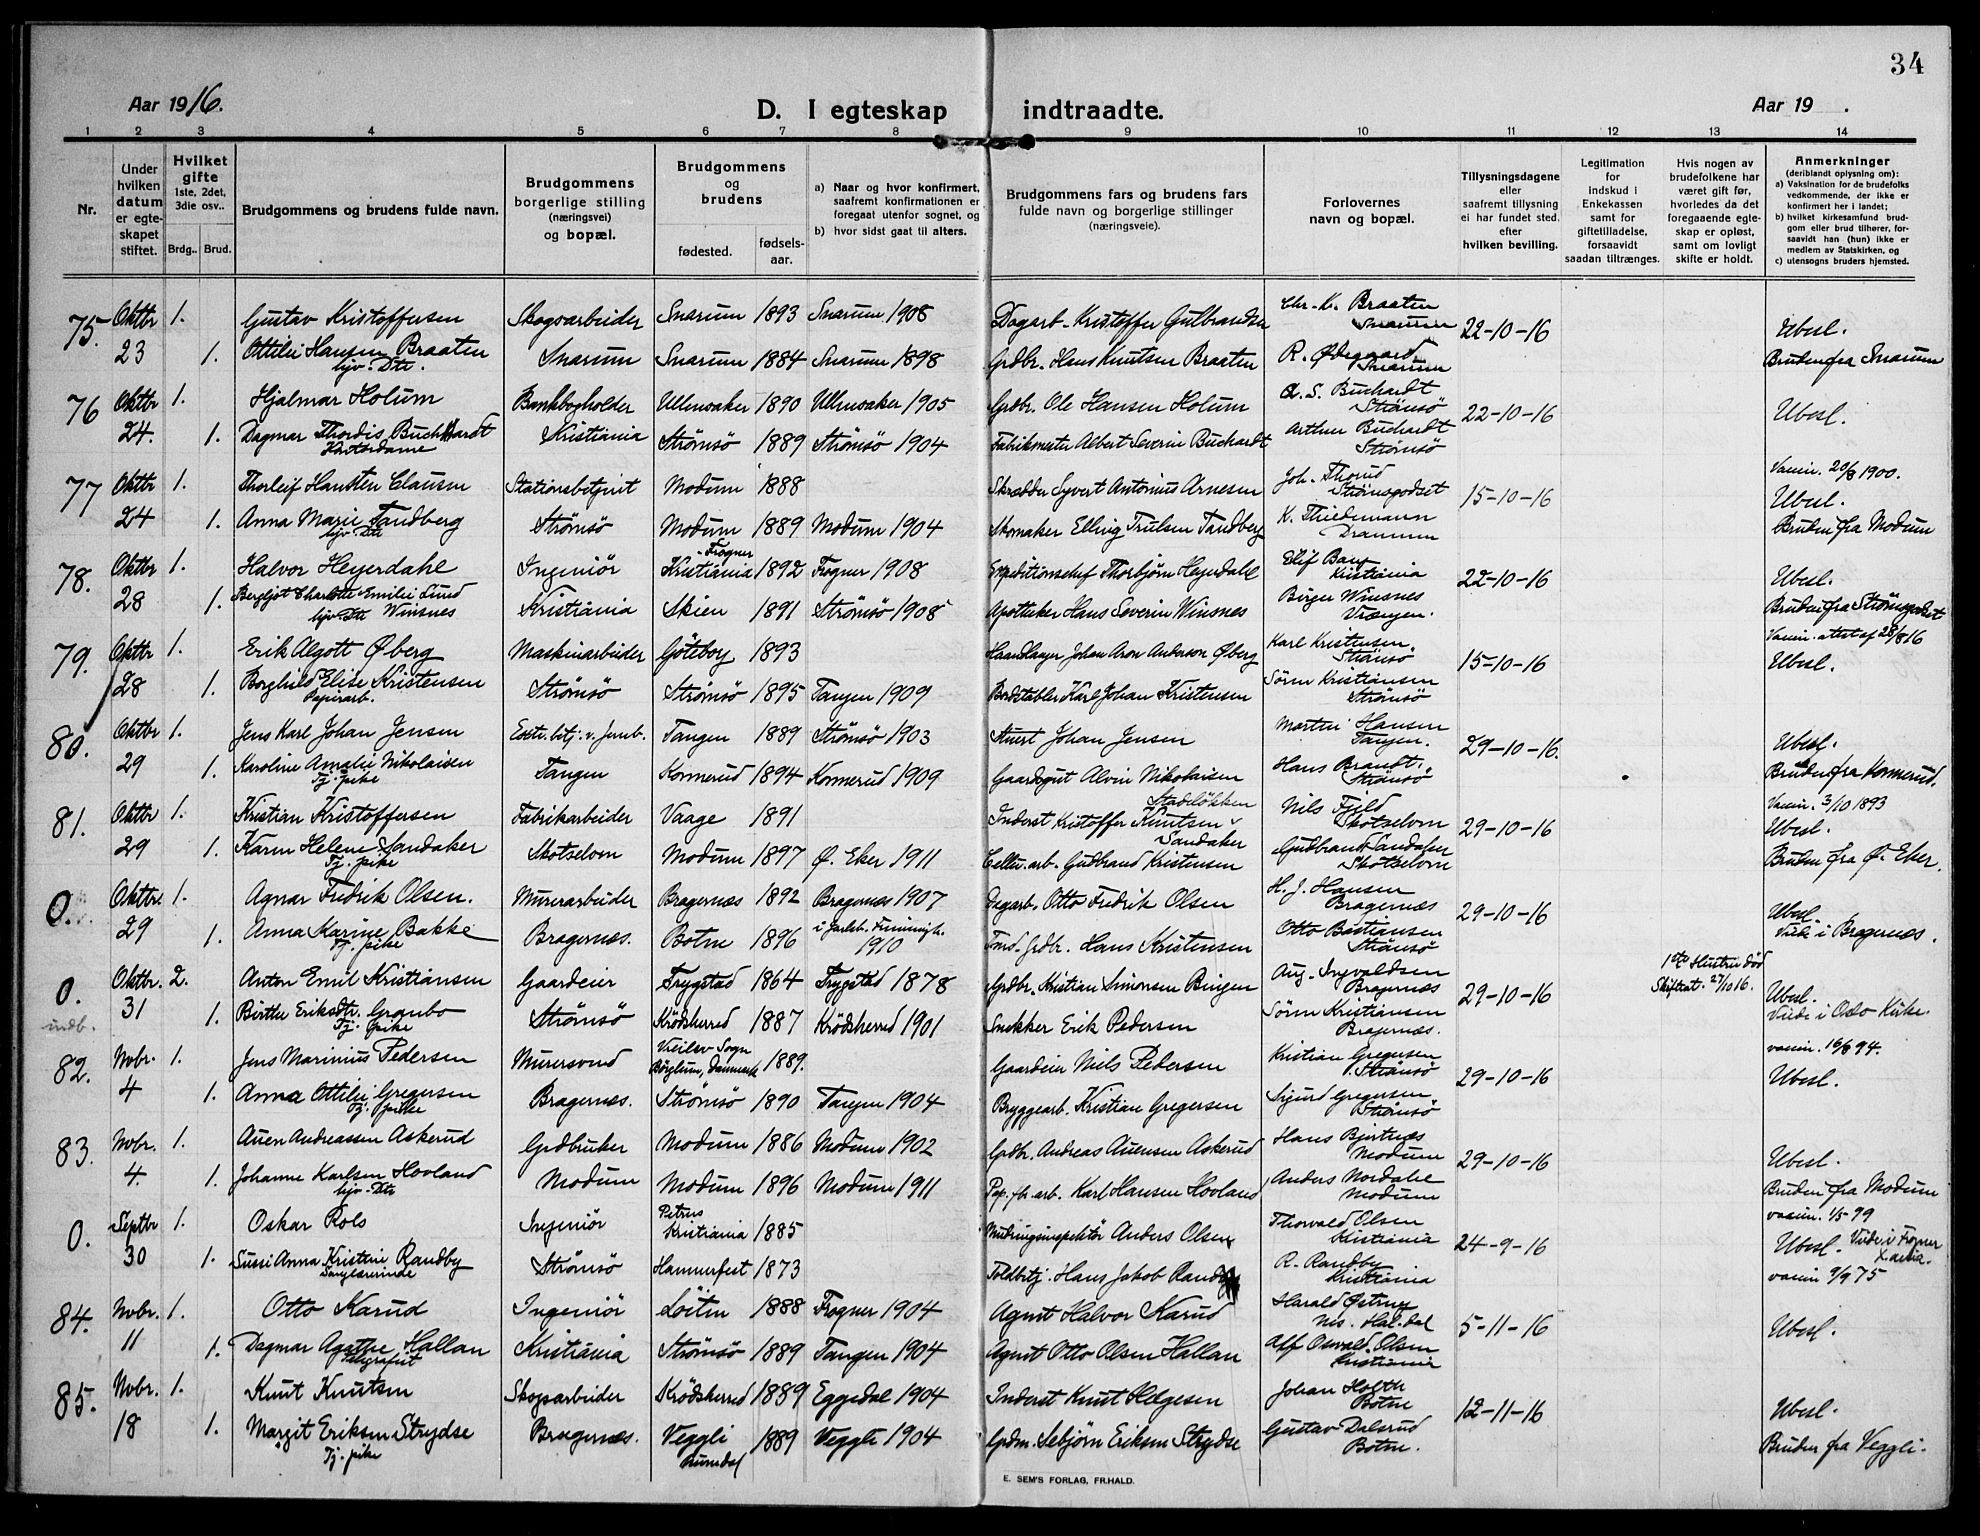 34
Aar 1916.
D. I egteskap indtraadte.
Aar 19 .
1 2 3 4 5 6 7 8 9 10 11 12 13 14
Nr.
Under hvilken datum er egteskapet stiftet.
Hvilket gifte 1ste, 2det, 3die osv..
Brdg.. Brud.
Brudgommens og brudens fulde navn.
Brudgommens borgerlige stilling (næringsvei) og bopæl.
Brudgommens og brudens
fødested. fødselsaar.
a) Naar og hvor konfirmert, saafremt konfirmationen er foregaat utenfor sognet, og
b) hvor sidst gaat til alters.
Brudgommens fars og brudens fars fulde navn og borgerlige stillinger (næringsveie).
Forlovernes navn og bopæl.
Tillysningsdagene eller saafremt tillysning ei har fundet sted. efter hvilken bevilling.
Legitimation for indskud i Enkekassen samt for giftetilladelse, forsaavidt saadan tiltrænges.
Hvis nogen av brudefolkene har været gift før, hvorledes da det foregaaende egteskap er opløst, samt om lovligt skifte er holdt.
Anmerkninger (deriblandt oplysning om):
a) Vaksination for de brudefolks vedkommende, der ikke er konfirmert her i landet;
b) hvilket kirkesamfund brudgom eller brud tilhører, forsaavidt han (hun) ikke er medlem av Statskirken, og
c) utensogns bruders hjemsted.
75. Oktbr 1. Gustav Kristoffersen Skogsarbeider Snarum 1893 Snarum 1908 Dagarb. Kristoffer Gulbrandsen Chr. K. Braaten Snarum 22-10-16 Ubesl.
23 1. Ottilie Hansen Braaten hjv. Dtr. Snarum Snarum 1884 Snarum 1898 Grdbr. Hans Knutsen Braaten R. Ødegaard Snarum Bruden fra Snarum
76 Oktbr 1. Hjalmar Holum Bankbogholder Ullensaker 1890 Ullensaker 1905 Grdbr. Ole Hansen Holum A. S. Buchardt Strömsö 22-10-16 Ubesl.
24. 1. Dagmar Thordis Buchardt Kontordame Kristiania Strømsö 1889 Strømsö 1904 Fabrikmester Albert Severin Buchardt Arthur Buchardt Strømsö
77 Oktbr 1. Thorleif Hansten Clausen Stationsbetjent Modum 1888 Skrædder Syvert Antonius Arnesen Joh. Thorud Strömsgodset 15-10-16 Vaccin. 20/8 1900. Ubesl.
24 1. Anna Marie Tandberg hjv. Dtr Strømsö Modum 1889 Modum 1904 Skomaker Elling Trulsen Tandberg K. Thiedemann Drammen Bruden fra Modum
78. Oktbr 1. Halvor Heyerdahl Ingeniör Frogner Kristiania 1892 Frogner 1908 Expeditionschef Thorbjørn Heyerdahl Kristiania 22-10-16 Ubesl.
28 1. Bergljot Charlotte Emilie Lund Winsnes hjv. Dtr Kristiania Skien 1891 Strømsö 1908 Apotheker Hans Severin Winsnes Birger Winsnes Bruden fra Strömsgodset
79. Oktbr 1. Erik Algott Øberg Maskinarbeider Göteborg 1893 Johan Aron Andersson Øberg Karl Kristensen. Strømsö 15-10-16 Vaccin. attest af 28/8 16 Ubesl.
28 1. Borghild Elise Kristensen Papirarb. Strømsö Strømsö 1895 Tangen 1909 Bordstabler Karl Johan Kristensen Sören Kristiansen Strømsö
80. Oktbr 1. Jens Karl Johan Jensen Extr. betj. v. Jernb. Tangen 1889 Strømsö 1903 Stuert Johan Jensen Martin Hansen Tangen. 29-10-16. Ubesl.
29 1. Karoline Amalie Nikolaisen Tj. pike Tangen Konnerud 1894 Konnerud 1909 Gaardsgut Alvin Nikolaisen Hans Brandt. Strömsö Bruden fra Konnerud.
81. Oktbr 1. Kristian Kristoffersen Fabrikarbeider Vaage 1891 Inderst Kristoffer Knutsen Stadeløkken Nils Fjeld Skotselven 29-10-16 Vaccin. 3/10 1893 Ubesl.
29 1. Karen Helene Sandaker Tj. pike Skotselven Modum 1897 Ø. Eker 1911 Cellu. arb. Gudbrand Kristensen Sandaker Gudbrand Sandaker Skotselven Bruden fra Ø. Eker.
0. Oktbr. 1. Agnar Fredrik Olsen. Murerarbeider Bragernæs 1892 Bragernæs 1907 Dagarb. Otto Fredrik Olsen H. J. Hansen Bragernæs 29-10-16 Ubesl.
29 1. Anna Karine Bakke Tj. pike Bragernæs. Botne 1896 i Jarlsb. 1910 Grdbr. Hans Kristensen Otto Bastiansen Strömsö Viede i Bragernæs.
0. Oktbr. 2. Anton Emil Kristiansen Gaardeier Trygstad 1864 Trygstad 1878 Grdbr. Kristian Simonsen Bingen Aug. Ingvaldsen Bragernæs 29-10-16 1ste Hustru död Skifteat. 27/10 16. Ubesl.
indb. 31 1. Birthe Eriksdtr. Granbo Tj. pike Strømsö Krödsherred 1887 Krödsherred 1901 Snekker Erik Pedersen Sören Kristiansen Bragernæs. Viede i Oslo Kirke.
82. Novbr. 1. Jens Marinius Pedersen Murersvend Vreilev Sogn Börglum, Danmark 1889. Gaardeier Niels Pedersen Kristian Gregersen Strömsö 29-10-16 vaccin. 16/8 94. Ubesl.
4 1. Anna Ottilie Gregersen Tj. pike Bragernæs. Strømsö 1890 Tangen 1904 Bryggearb. Kristian Gregersen Sigurd Gregersen Strömsö
83. Novbr. 1. Auen Andreassen Askerud Grdbruker Modum 1886 Modum 1902 Grdbr. Andreas Auensen Askerud Hans Bjertnæs Modum 29-10-16 Ubesl.
4. 1. Johanne Karlsen Hovland hjv. Dtr Modum Modum 1896 Modum 1911 Pap. fb. arb. Karl Hansen Hovland Anders Nordahl Modum Bruden fra Modum
0. Septbr 1. Oskar Rols Ingeniör Petrus Kristiania 1885 Anders Olsen Thorvald Olsen Kristiania 24-9-16 vaccin. 1/5 99 Ubesl. Viede i Frogner
30 1. Sussi Anna Kristine Randby Sangerinde Strømsö Hammerfest 1873 Toldbetj. Hans Jakob Randby R. Randby Kristiania vaccin 9/9 75
84. Novbr. 1. Otto Karud Ingeniör Löiten 1888 Frogner 1904 Agent Halvor Karud Harald Østrup 5-11-16 Ubesl.
11 1. Dagmar Agathe Hallan Telegrafist Kristiania Strømsö 1889 Tangen 1904 Agent Otto Olsen Hallan Alf Oswald Olsen Kristiania
85. Novbr. 1. Knut Knutsen Skogsarbeider Krödsherred 1889 Eggedal 1904 Inderst Knut Helgesen Johan Holth Botne 12-11-16 Ubesl.
18 1. Margit Eriksen Strydse Tj. pike Bragernæs. Veggli Numedal 1889 Veggli 1904 Grdm. Sebjörn Eriksen Strydse Gustav Dalsrud Botne. Bruden fra Veggli.
E. SEM'S FORLAG, FR.HALD.